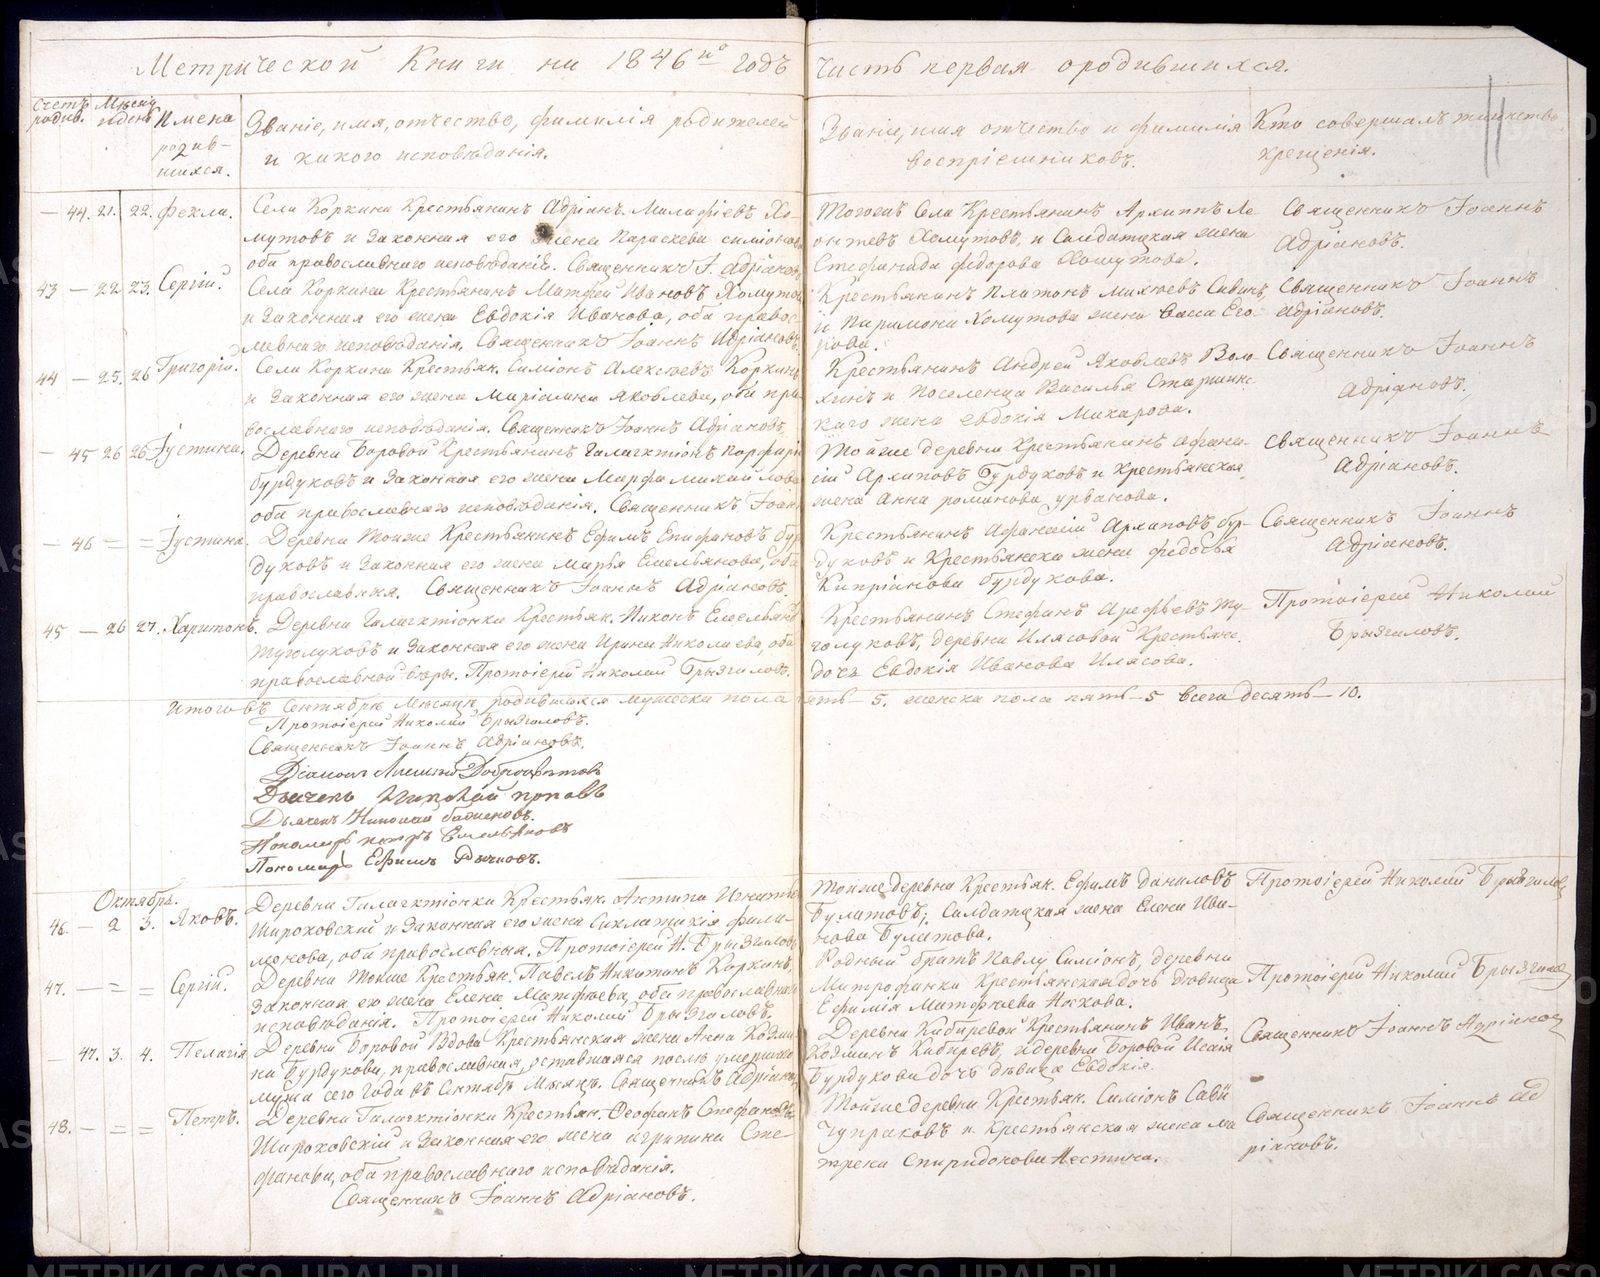 Метрической Книги на 1846й годъ Часть первая о родившихся.
Счетъ родив.
Мѣсяц и день
Имена родив-
шихся.
Званіе, имя, отчество, фамилія родителей
и какого исповѣданія.
Званіе, имя отчество и фамилія
воспріемниковъ.
Кто совершалъ таинство
крещенія.
— 44. 21. 22. Фекла.
Села Коркина Крестьянинъ Адріанъ Хо-
мутовъ и законная его жена Параскева
оба православнаго исповѣданія. Священникъ І. Адріановъ
Тогожъ Села Крестьянинъ Архиппъ Ле-
онтьевъ Хомутовъ, и Солдатская жена
Стефанида Федорова Хомутова.
Священникъ Іоаннъ
Адріановъ.
43 — 22 23. Сергій.
Села Коркина Крестьянинъ Матфей Ивановъ Хомутов
и законная его жена Евдокія Иванова, оба правос-
лавнаго исповѣданія. Священникъ Іоаннъ Адріановъ.
Крестьянинъ Платонъ Савинъ,
и Хомутова жена Его-
рова.
Священникъ Іоаннъ
Адріановъ.
44 — 25. 26 Григорій.
Села Коркина Крестьян. Симіонъ Алексѣевъ Коркинъ
и законная его жена Маріамна Яковлева, оба пра-
вославнаго исповѣданія. Священникъ Іоаннъ Адріановъ.
Крестьянинъ Андрей Яковлевъ Воло-
хинъ и Поселенца Василья
каго жена Евдокія Макарова.
Священникъ Іоаннъ
Адріановъ.
— 45 26 26 Іустина.
Деревни Боровой Крестьянинъ Галактіонъ Порфирі
Бурдуковъ и законная его жена Марфа Михайлова
оба православнаго исповѣданія. Священникъ Іоан
Тойже деревни Крестьянинъ Афана-
сій Архиповъ Бурдуковъ и Крестьянская
жена Анна Романова Урванова.
Священникъ Іоаннъ
Адріановъ.
— 46 = = Іустина.
Деревни Тойже Крестьянинъ Ефимъ Епифановъ Бур
дуковъ и законная его жена Марья Емельянова, оба
православныя. Священникъ Іоаннъ Адріановъ.
Крестьянинъ Афанасій Архиповъ Бур-
дуковъ и Крестьянска жена Федосья
Кипріанова Бурдукова.
Священникъ Іоаннъ
Адріановъ.
45 — 26 27. Харитонъ.
Деревни Галактіонки Крестьян. Никонъ Емельянъ
Туголуковъ и законная его жена Ирина Николаева, оба
православной вѣры. Протоіерей Николай Брызгаловъ.
Крестьянинъ Стефанъ Арефьевъ Ту-
голуковъ, деревни Илясовой Крестьянс.
дочь Евдокія Иванова Илясова.
Протоіерей Николай
Брызгаловъ.
Итого въ Сентябрѣ Мѣсяцѣ родившихся мужеска пола пять — 5. женска пола пять — 5 всего десять — 10.
Протоіерей Николай Брызгаловъ.
Священникъ Іоаннъ Адріановъ.
Діаконъ
Дьячекъ Николай Поповъ
Дьячекъ Николай
Пономарь Петръ Емельяновъ
Пономарь Ефимъ
Октябрь.
46. — 2 3. Яковъ.
Деревни Галактіонки Крестьян. Антипа Игнатьев
Широковскій и законная его жена Синклитикія Фили-
монова, оба православныя. Протоіерей Н. Брызгаловъ
Тойже деревни Крестьян. Ефимъ Даниловъ
Булатовъ; Салдатская жена Елена Ива-
нова Булатова.
Протоіерей Николай Брызгалов
47. — = = Сергій.
Деревни Тойже Крестьян. Павелъ Никитинъ Коркинъ,
законная его жена Елена Матфѣева, оба православнаго
исповѣданія. Протоіерей Николай Брызгаловъ.
Родный братъ Павлу Симіонъ, деревни
Митрофанки Крестьянская дочь дѣвица
Ефимія Матфѣева Носкова.
Протоіерей Николай Брызгалов
— 47. 3. 4. Пелагія
Деревни Боровой Вдова Крестьянская жена Анна Козми
на Бурдукова, православная, оставшаяся послѣ умершаго
мужа сего года въ Сентябрѣ Мѣсяцѣ. Священникъ Адріанов
Деревни Кибиревой Крестьянинъ Иванъ
Козминъ Кибиревъ, и деревни Боровой Исаія
Бурдукова дочь дѣвица Евдокія.
Священникъ Іоаннъ Адріанов
48. — = = Петръ.
Деревни Галактіонки Крестьян. Феофанъ Стефановъ
Широковскій и законная его жена Агрипина Сте-
фанова, оба православнаго исповѣданія.
Священникъ Іоаннъ Адріановъ.
Тойже деревни Крестьян. Симіонъ Сави
Чупраковъ и Крестьянская жена Ма
трена Спиридонова
Священникъ Іоаннъ Ад
ріановъ.
METRIKI.GASO-URAL.RU